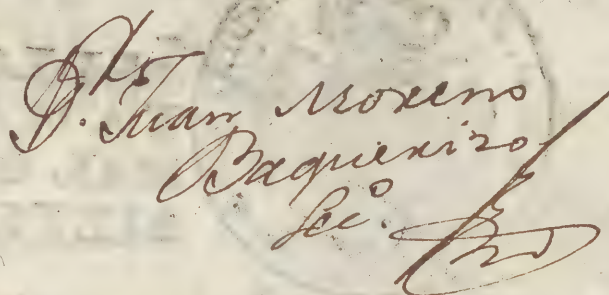 D.ⁿ Juan Moreno
Baquerizo
Sec.º